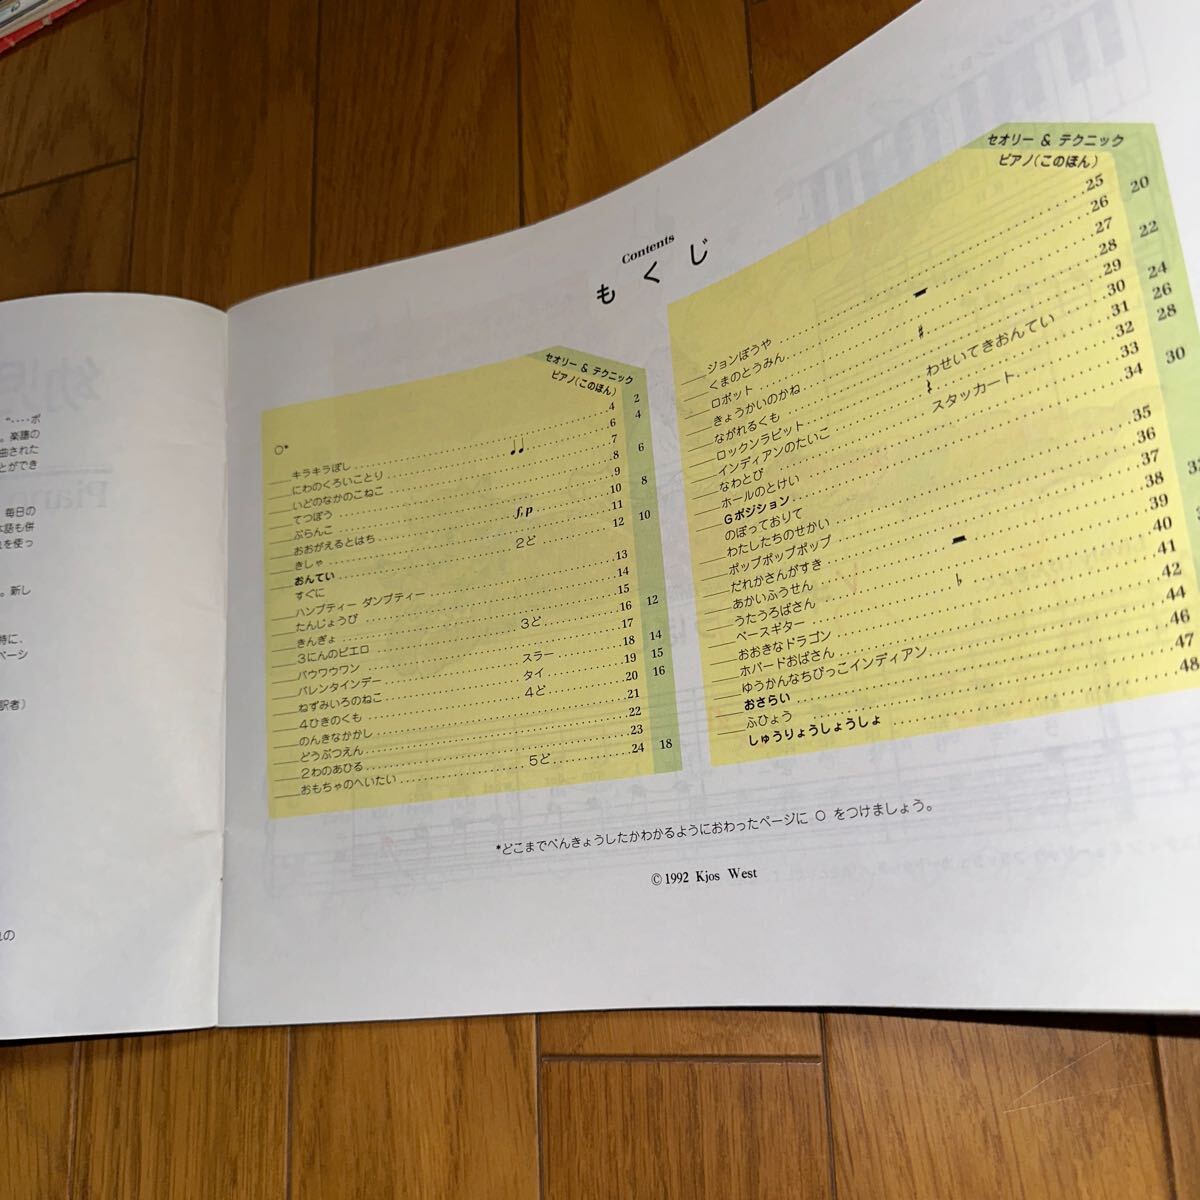 "‥‥ポ
。楽譜の
曲された
とができ
毎日の
本語も併
。新し
特に、
ページ
訳者)
Contents
もくじ
セオリー & テクニック
ピアノ(このほん)
2
○*
キラキラぼし 4 4
にわのくろいことり ♩♩ 6
いどのなかのこねこ 7
てつぼう 8 6
ぶらんこ 9
おおがえるとはち 10 8
きしゃ f, p 11
おんてい 2ど 12 10
すぐに 13
ハンプティー ダンプティー 14
たんじょうび 15
きんぎょ 16 12
3にんのピエロ 3ど 17
バウワウワン 18 14
バレンタインデー スラー 19 15
ねずみいろのねこ タイ 20 16
4ひきのくも 4ど 21
のんきなかかし 22
どうぶつえん 23
2わのあひる 24 18
おもちゃのへいたい 5ど
セオリー & テクニック
ピアノ(このほん)
ジョンぼうや 25 20
くまのとうみん 26
ロボット 27 22
きょうかいのかね ♯ 28
ながれるくも 29 24
ロックンラビット わせいてきおんてい 30 26
インディアンのたいこ 31 28
なわとび スタッカート 32
ホールのとけい 33 30
Gポジション 34
のぼっておりて
わたしたちのせかい 35
ポップポップポップ 36
だれかさんがすき 37
あかいふうせん 38
うたうろばさん 39
ベースギター ♭ 40
おおきなドラゴン 41
ホバードおばさん 42
ゆうかんなちびっこインディアン 44
おさらい 46
ふひょう 47
しゅうりょうしょうしょ 48
*どこまでべんきょうしたかわかるようにおわったページに ○ をつけましょう。
©1992 Kjos West